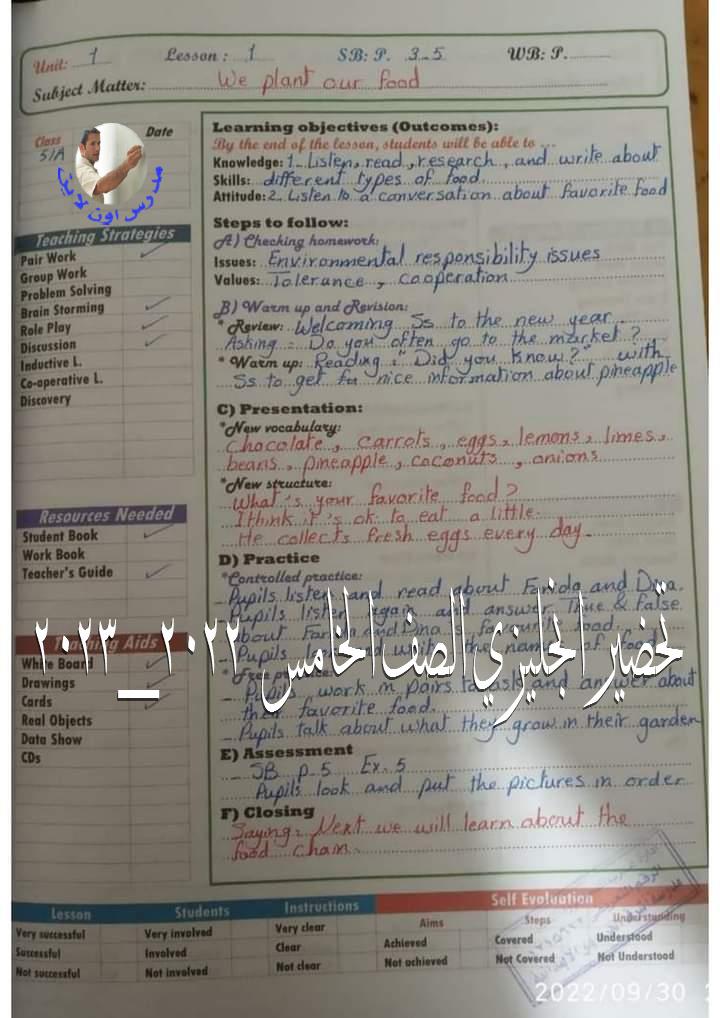 Unit: 1 Lesson : 1 SB: P. 3-5 WB: P.
Subject Matter: We plant our food
Class Date
5/A
مدرس اون لاين
Teaching Strategies
Pair Work
Group Work
Problem Solving
Brain Storming
Role Play
Discussion
Inductive L.
Co-operative L.
Discovery
Resources Needed
Student Book
Work Book
Teacher's Guide
Teaching Aids
White Board
Drawings
Cards
Real Objects
Data Show
CDs
Learning objectives (Outcomes):
By the end of the lesson, students will be able to ...
Knowledge: 1- Listen, read, research, and write about
Skills: different types of food.
Attitude: 2. Listen to a conversation about favorite food
Steps to follow:
A) Checking homework:
Issues: Environmental responsibility issues
Values: Tolerance, cooperation
B) Warm up and Revision:
* Review: Welcoming Ss to the new year.
Asking: Do you often go to the market?
* Warm up: Reading: "Did you know?" with
Ss to get nice information about pineapple
C) Presentation:
*New vocabulary:
Chocolate, carrots, eggs, lemons, limes,
beans, pineapple, coconuts, onions
*New structure:
What's your favorite food?
I think it's ok to eat a little.
He collects fresh eggs every day.
D) Practice
*Controlled practice:
- Pupils listen and read about Farida and Dina.
- Pupils listen again and answer True & False
about Farida and Dina's favourite food.
- Pupils and write the names of food.
*Free practice:
- Pupils work in pairs to ask and answer about
their favorite food.
- Pupils talk about what they grow in their garden
تحضير انجليزي الصف الخامس ٢٠٢٢_٢٠٢٣
E) Assessment
- SB p-5 Ex. 5
Pupils look and put the pictures in order
F) Closing
Saying: Next we will learn about the
food chain.
Lesson Students Instructions Self Evaluation
Aims Steps Understanding
Very successful Very involved Very clear
Successful Involved Clear Achieved Covered Understood
Not successful Not involved Not clear Not achieved Not Covered Not Understood
2022/09/30